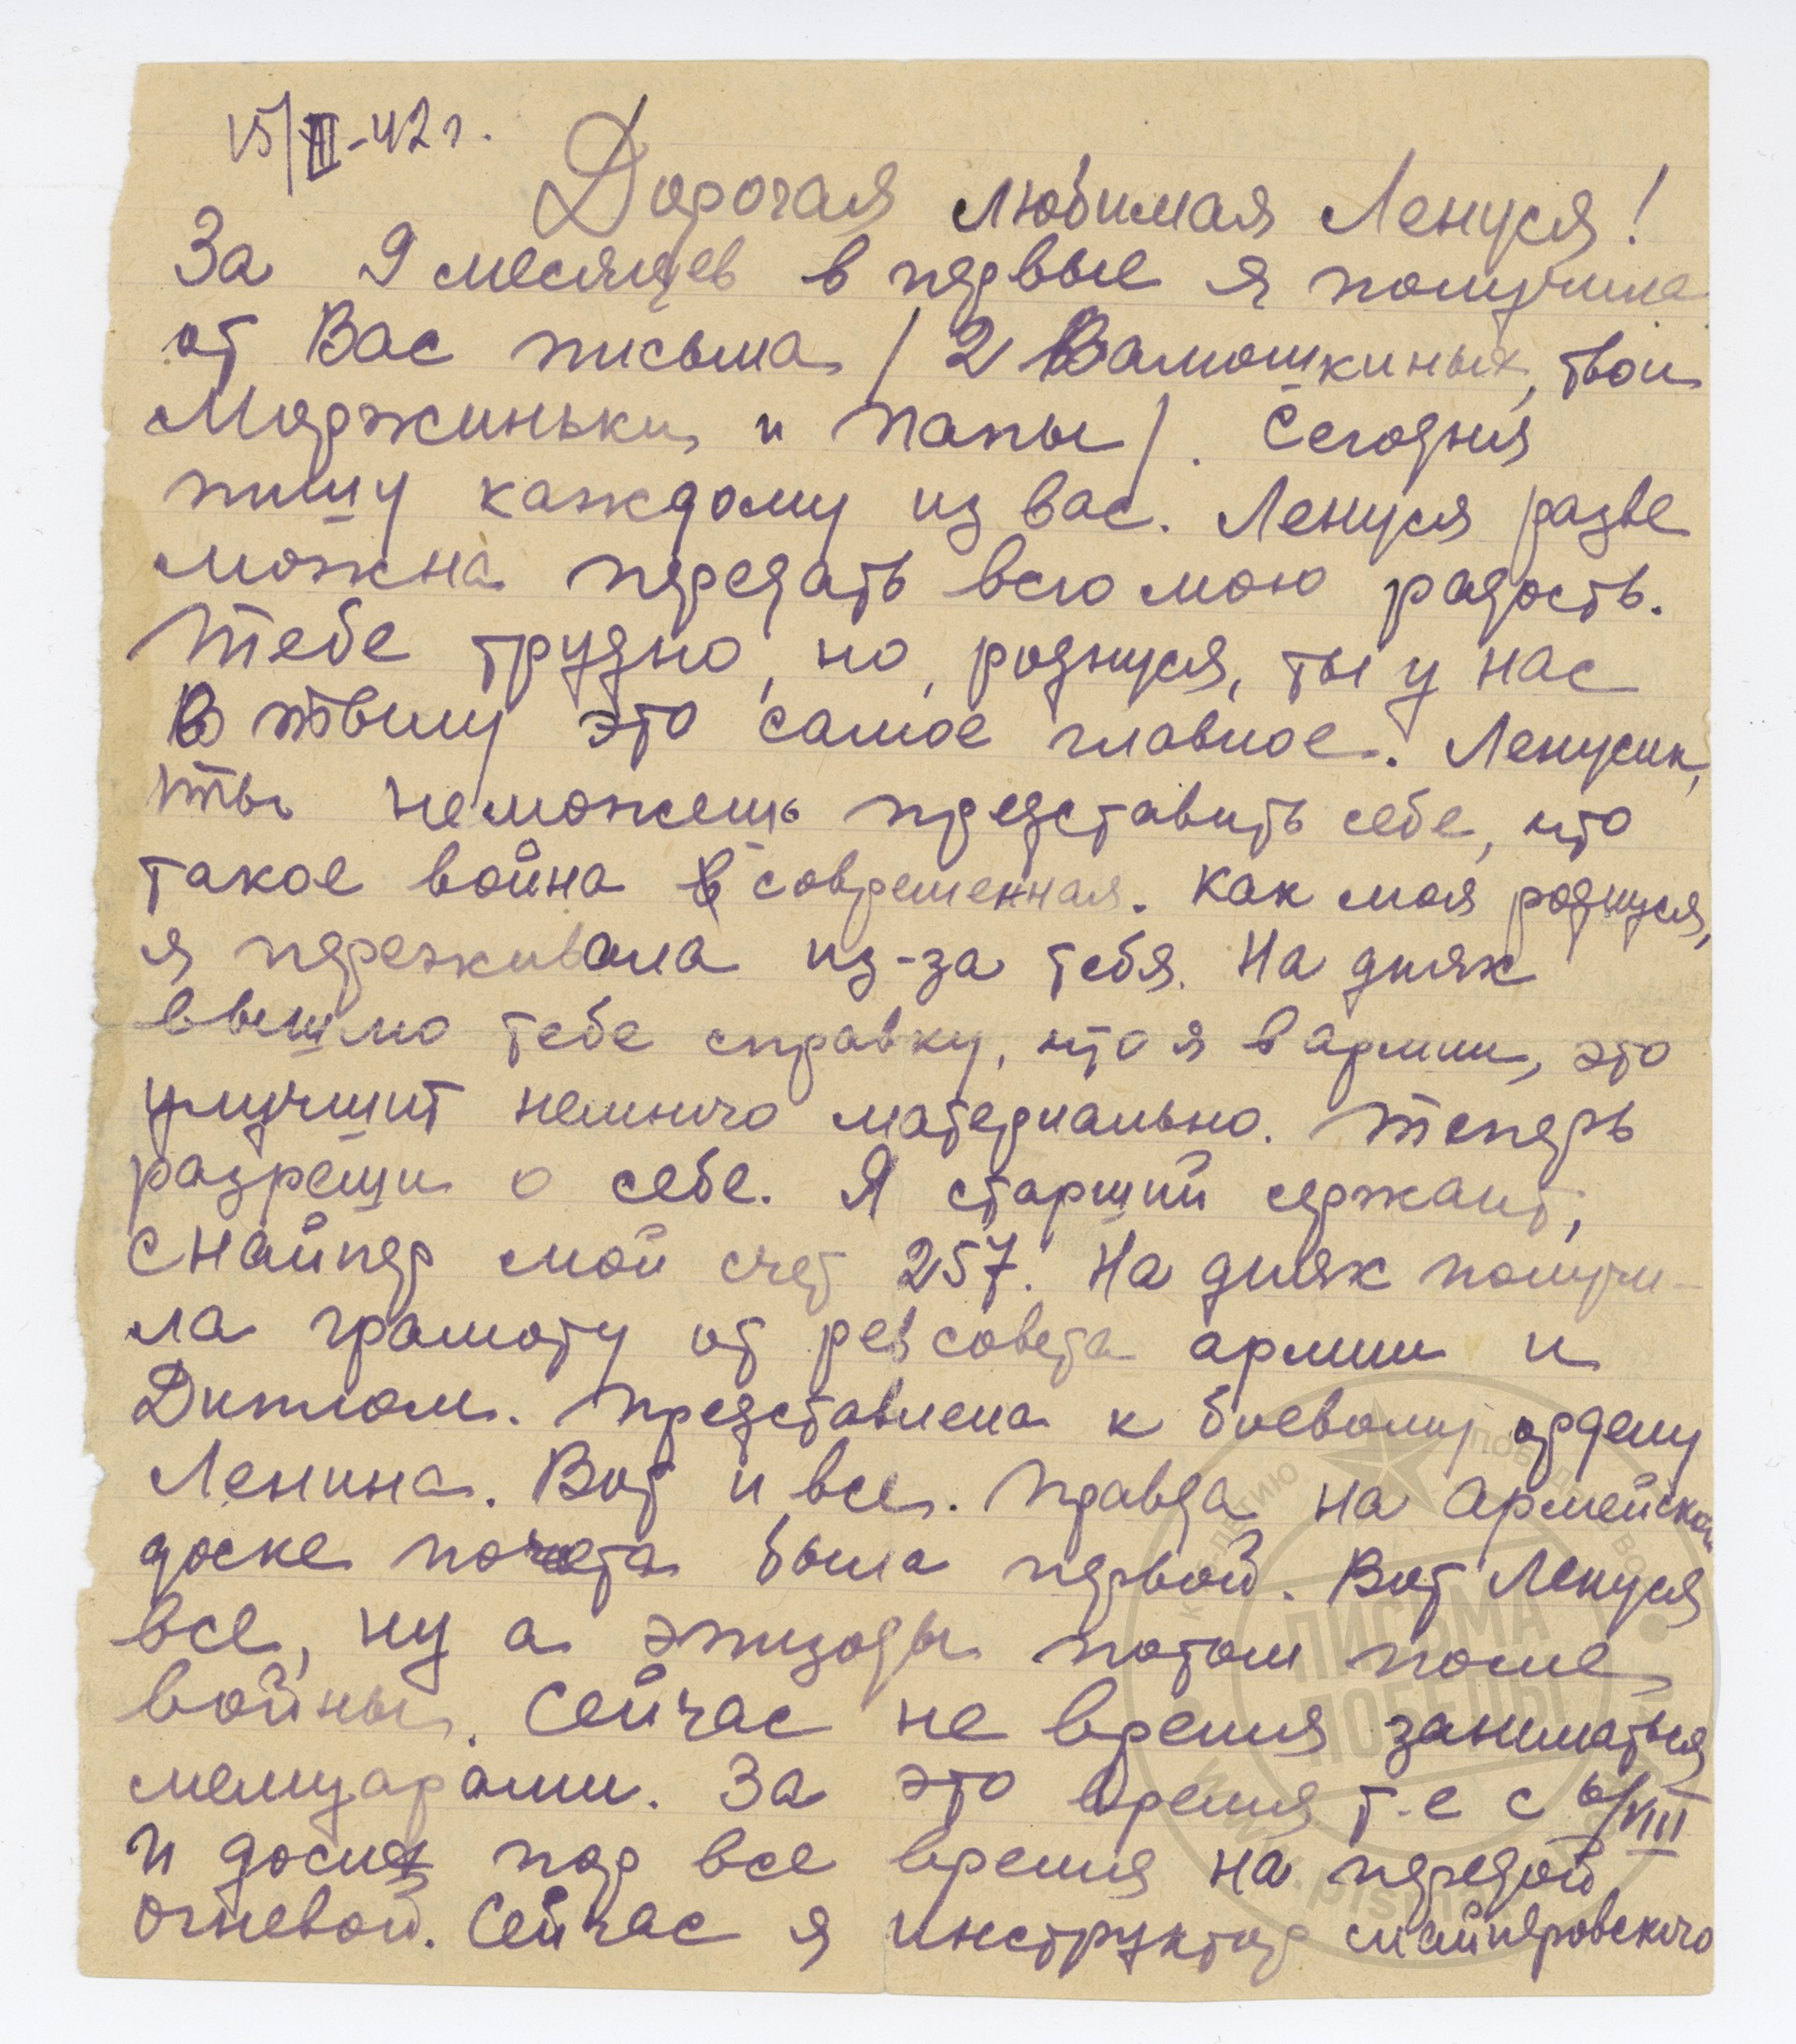 15/III-42 г.
Дорогая любимая Ленуся!
За 9 месяцев в первые я получила
от Вас письма / 2 Валюшкиных, твои
Марджиньки и папы /. Сегодня
пишу каждому из вас. Ленуся разве
можна передать всю мою радость.
Тебе трудно, но, роднуся, ты у нас
в тылу это самое главное. Ленусик,
ты неможешь представить себе, что
такое война современная. Как моя роднуся,
я переживала из-за тебя. На днях
вышлю тебе справку, что я в армии, это
улучшит немного материально. Теперь
разреши о себе. Я старший сержант,
снайпер мой счет 257. На днях получи-
ла грамоту от ревсовета армии и
Диплом. Представлена к боевому ордену
Ленина. Вот и все. Правда на Армейской
доске почета была первой. Вот Ленуся
все, ну а эпизоды потом после
войны. Сейчас не время заниматься
мемуарами. За это время т.е с 6/VIII
и досих пор все время на передой
огневой. Сейчас я инструктор снайперовского
ПИСЬМА
ПОБЕДЫ